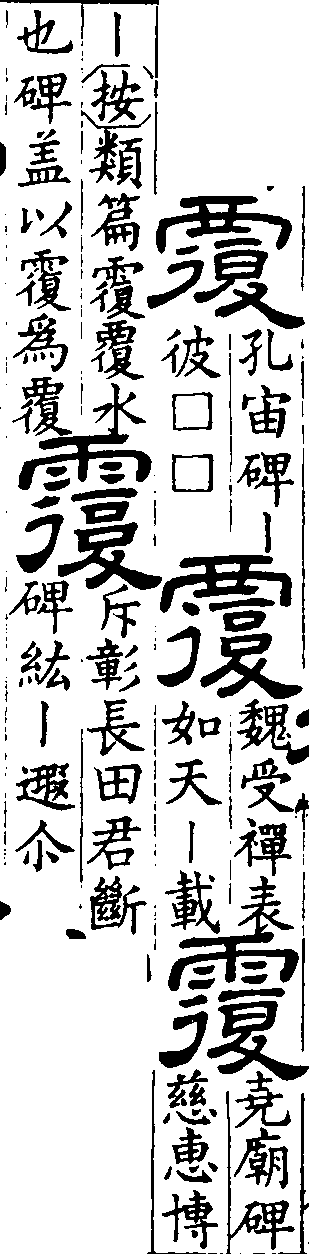 覆
孔宙碑丨
彼□□
覆
魏受禪表
如天丨載
䨱
尭廟碑
慈恵博
丨(按)類篇䨱覆水
也碑盖以䨱為覆
䨱
斥彰長田君斷
碑紘丨遐尒